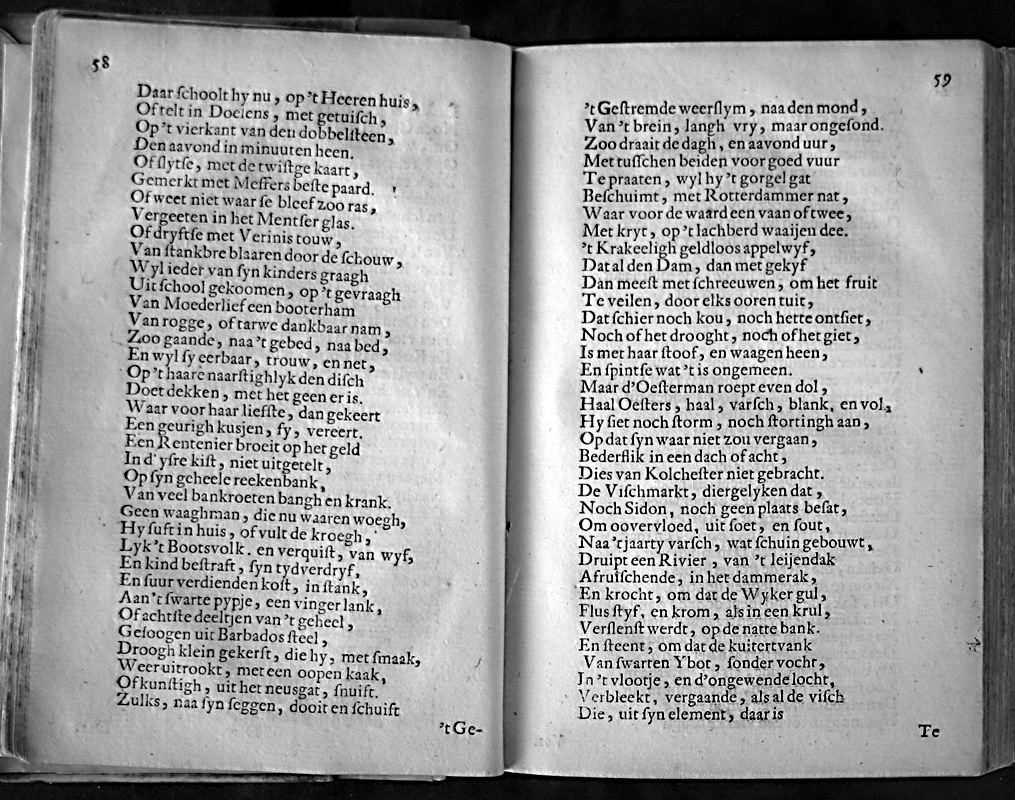 58
Daar ſchoolt hy nu, op 't Heeren huis,
Of telt in Doelens, met getuiſch,
Op 't vierkant van den dobbelſteen,
Den aavond in minuuten heen.
Of ſlytſe, met de twiſtge kaart,
Gemerkt met Meſſers beſte paard.
Of weet niet waar ſe bleef zoo ras,
Vergeeten in het Mentſer glas.
Of dryftſe met Verinis touw,
Van ſtankbre blaaren door de ſchouw,
Wyl ieder van ſyn kinders graagh
Uit ſchool gekoomen, op 't gevraagh
Van Moederlief een booterham
Van rogge, of tarwe dankbaar nam,
Zoo gaande, naa 't gebed, naa bed,
En wyl ſy eerbaar, trouw, en net,
Op 't haare naarſtighlyk den diſch
Doet dekken, met het geen er is.
Waar voor haar liefſte, dan gekeert
Een geurigh kusjen, ſy, vereert.
Een Rentenier broeit op het geld
In d' yſre kiſt, niet uitgetelt,
Op ſyn geheele reekenbank,
Van veel bankroeten bangh en krank.
Geen waaghman, die nu waaren woegh,
Hy ſuft in huis, of vult de kroegh,
Lyk 't Bootsvolk. en verquiſt, van wyf,
En kind beſtraft, ſyn tydverdryf,
En ſuur verdienden koſt, in ſtank,
Aan 't ſwarte pypje, een vinger lank,
Of achtſte deeltjen van 't geheel,
Geſoogen uit Barbados ſteel,
Droogh klein gekerft, die hy, met ſmaak,
Weer uitrookt, met een oopen kaak,
Of kunſtigh, uit het neusgat, ſnuift.
Zulks, naa ſyn ſeggen, dooit en ſchuift
't Ge-
59
't Geſtremde weerſlym, naa den mond,
Van 't brein, langh vry, maar ongeſond.
Zoo draait de dagh, en aavond uur,
Met tuſſchen beiden voor goed vuur
Te praaten, wyl hy 't gorgel gat
Beſchuimt, met Rotterdammer nat,
Waar voor de waard een vaan of twee,
Met kryt, op 't lachberd waaijen dee.
't Krakeeligh geldloos appelwyf,
Dat al den Dam, dan met gekyf
Dan meeſt met ſchreeuwen, om het fruit
Te veilen, door elks ooren tuit,
Dat ſchier noch kou, noch hette ontſiet,
Noch of het drooght, noch of het giet,
Is met haar ſtoof, en waagen heen,
En ſpintſe wat 't is ongemeen.
Maar d'Oeſterman roept even dol,
Haal Oeſters, haal, varſch, blank, en vol,
Hy ſiet noch ſtorm, noch ſtortingh aan,
Op dat ſyn waar niet zou vergaan,
Bederflik in een dach of acht,
Dies van Kolcheſter niet gebracht.
De Viſchmarkt, diergelyken dat,
Noch Sidon, noch geen plaats beſat,
Om oovervloed, uit ſoet, en ſout,
Naa 't jaarty varſch, wat ſchuin gebouwt,
Druipt een Rivier, van 't leijendak
Afruiſchende, in het dammerak,
En krocht, om dat de Wyker gul,
Flus ſtyf, en krom, als in een krul,
Verſlenſt werdt, op de natte bank.
En ſteent, om dat de kuitertvank
Van ſwarten Ybot, ſonder vocht,
In 't vlootje, en d'ongewende locht,
Verbleekt, vergaande, als al de viſch
Die, uit ſyn element, daar is
Te